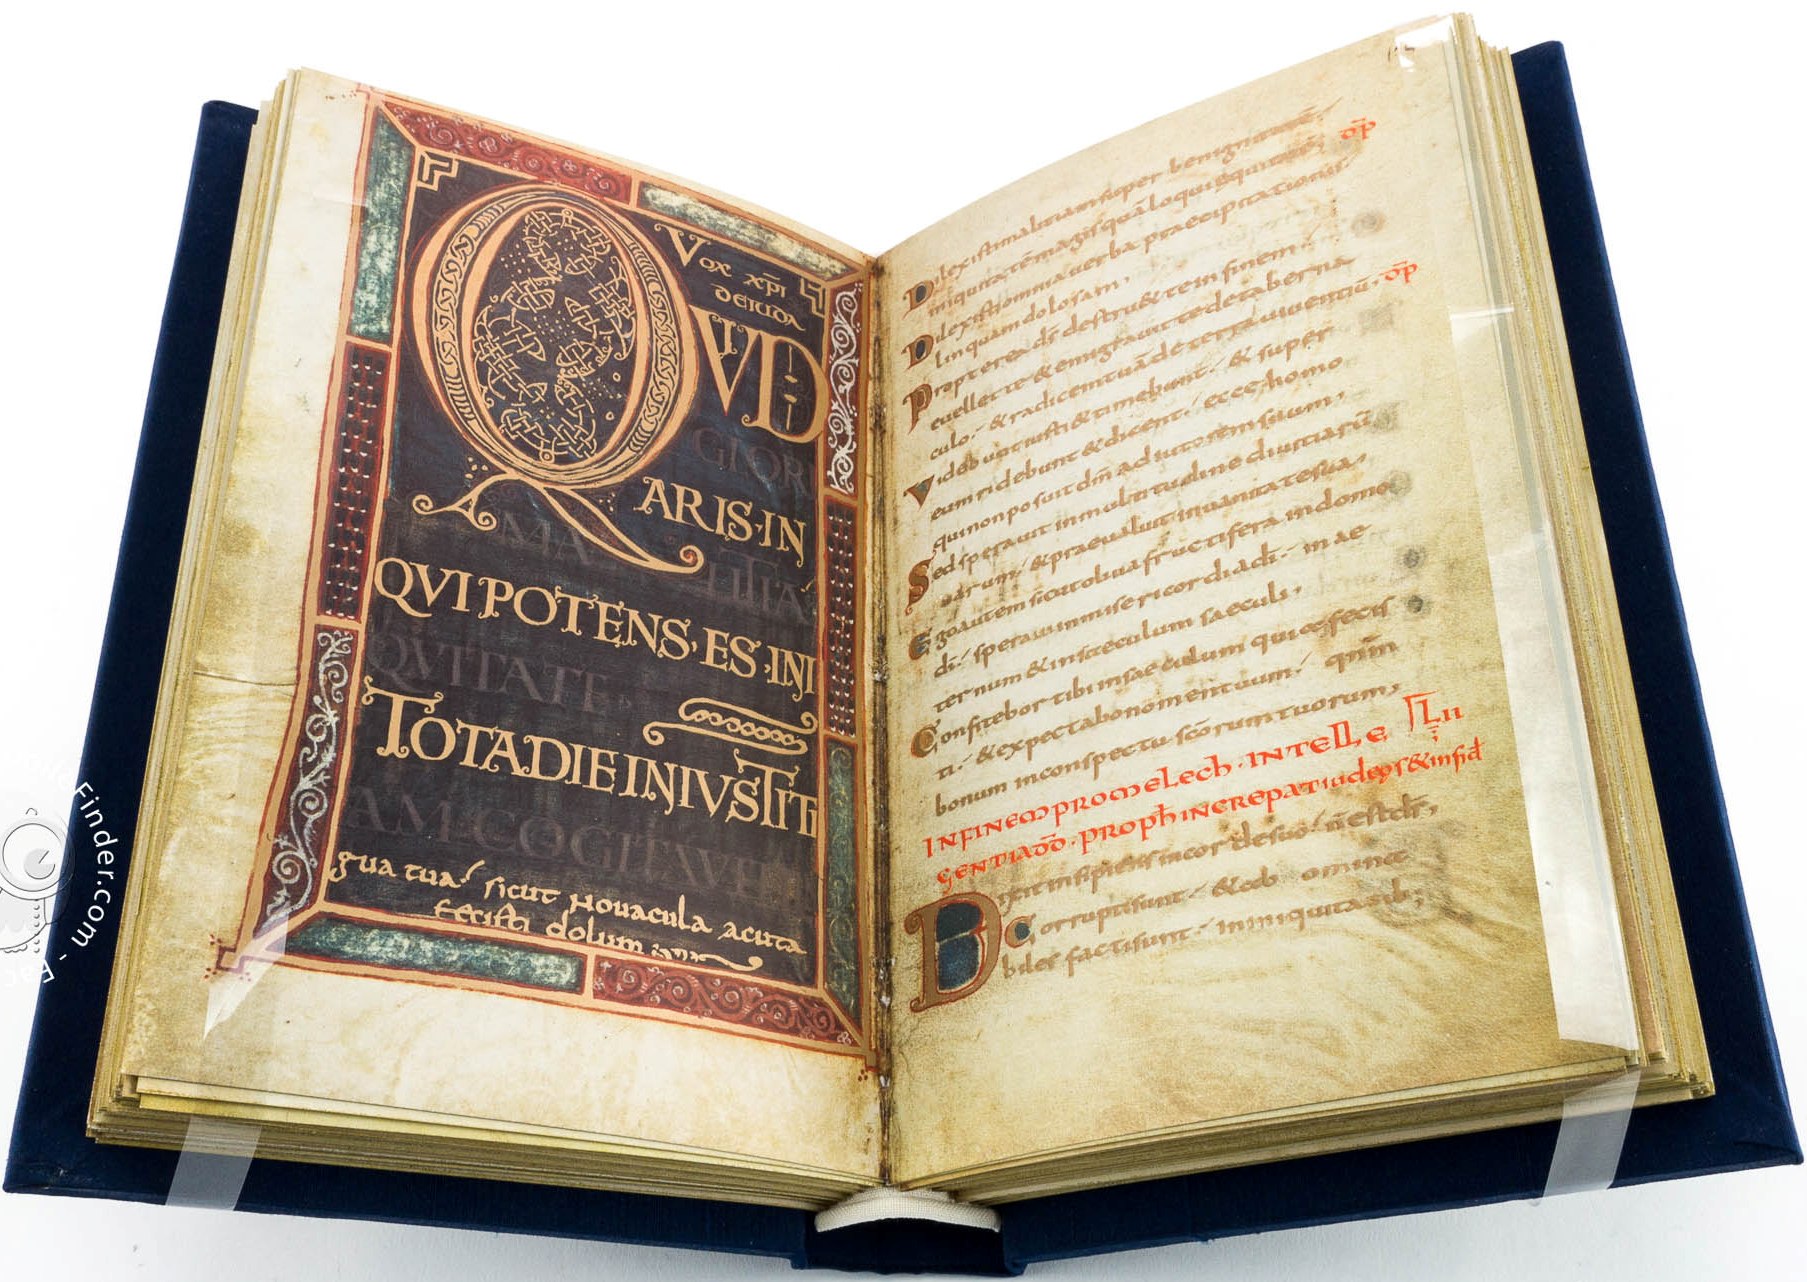 Vox xp̄i
deiuda
QVID
GLORI
ARIS·IN
MALITIA
QVIPOTENS·ES·INI
QVITATE
TOTADIEINIVSTITI
AM COGITAVIT
gua tua· sicut nouacula acuta
fecisti dolum
Dilexisti malitiam super benignitatē·
iniquitatē magis quā loqui equitatē; op̄
Dilexisti omnia uerba praecipitationis
linquam dolosam·
Propterea ds̄ destru& te in finem·
euellet te & emigrauit te de taberna
culo·& radicem tuā de terra uiuentiū· op̄
Videbunt iusti & timebunt·& super
eum ridebunt & dicent· ecce homo
qui non posuit dm̄ adiutorem suum,
Sed sperauit in multitudine diuitiarū
suarum·& praeualuit in uanitate sua·
Ego autem sicut oliua fructifera in domo
dī· speraui in misericordia dī· in ae
ternum & in saeculum saeculi,
Confitebor tibi in saeculum qui fecis
ti·& expectabo nomen tuum· qnm̄
bonum in conspectu scōrum tuorum,
INFINEM PRO MELECH·INTELLE LII
GENTIA DD̄·PROPH INCREPAT IUDEOS & INFID
Dixit insipiens in cor de suo· n̄ est ds̄,
Corrupti sunt·& ab omina
biles facti sunt· in iniquitatib;
Finder.com -